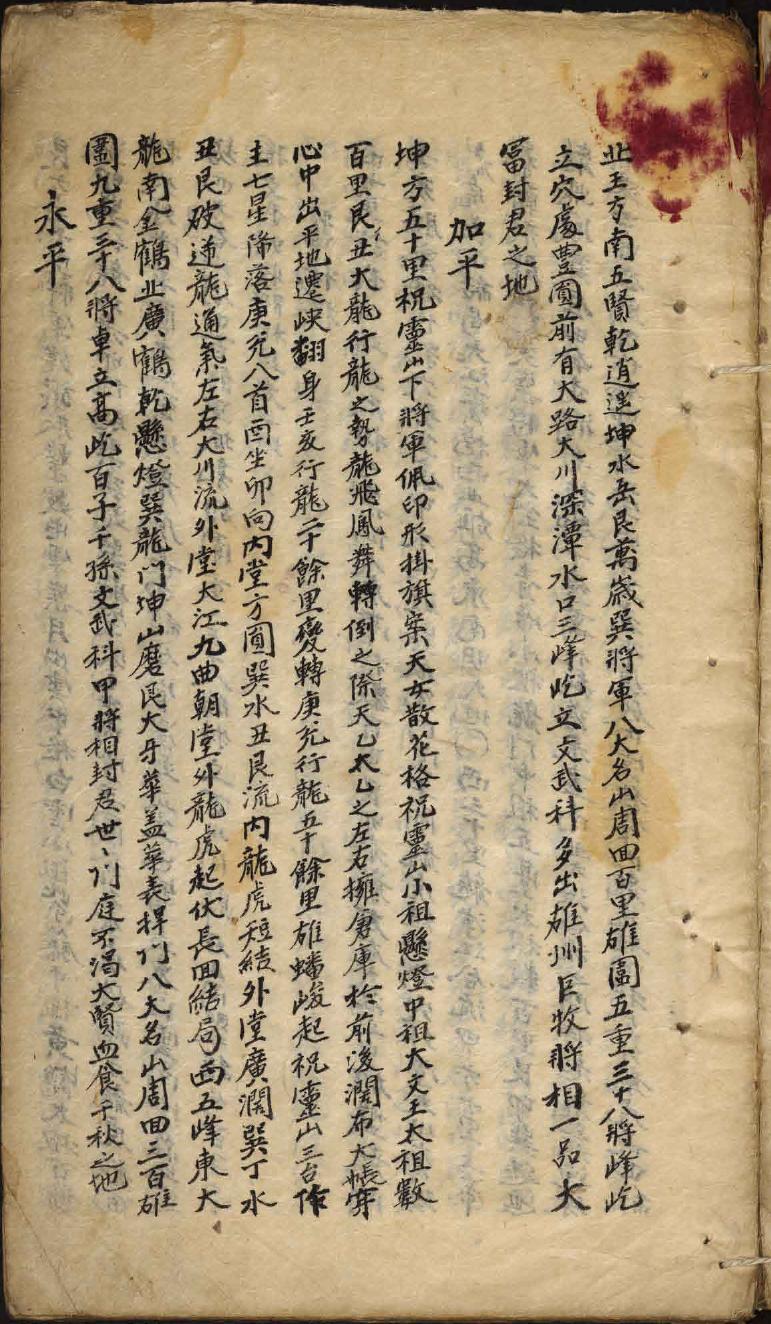 北王方南五賢乾逍遥坤水岳艮萬歲巽將軍八大名山周回百里雄圖五重三十八將峰屹
立穴處豊圓前有大路大川深潭水口三峰屹立文武科多出雄州巨牧將相一品大
冨封君之地
加平
坤方五十里祝靈山下將軍佩印形掛旗案天女散花格祝靈山小祖懸燈中祖大文王太祖數
百里艮丑大龍行龍之勢龍飛鳳舞轉倒之際天乙太乙之左右擁倉庫於前後濶布大帳穿
心中出平地遷峽翻身壬亥行龍二十餘里變轉庚兌行龍五十餘里雄蟠峻起祝靈山三台作
主七星降落庚兌八首酉坐卯向內堂方圓巽水丑艮流內龍虎短結外堂廣濶巽丁水
丑艮破逆龍通氣左右大川流外堂大江九曲朝堂外龍虎起伏長回結局西五峰東大
龍南金鶴北廣鶴乾懸燈巽龍門坤山磨艮大牙華盖華表捍門八大名山周回三百雄
圖九重三十八將卓立高屹百子千孫文武科甲將相封君世〻門庭不渴大賢血食千秋之地
永平